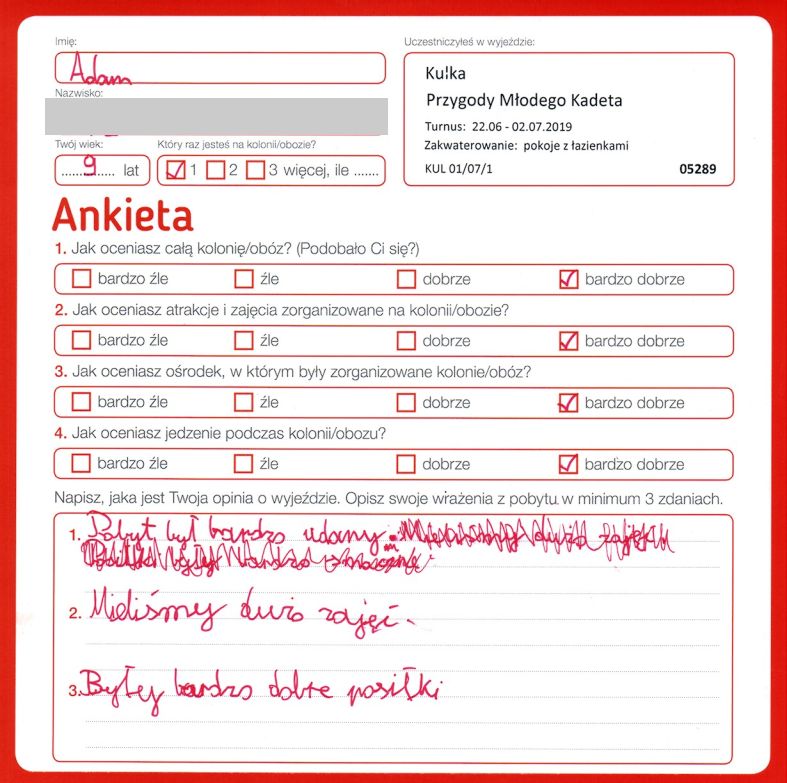 Imię:
Adam
Uczestniczyłeś w wyjeździe:
Kulka
Przygody Młodego Kadeta
Turnus: 22.06 - 02.07.2019
Zakwaterowanie: pokoje z łazienkami
KUL 01/07/1 05289
Nazwisko:
Twój wiek: Który raz jesteś na kolonii/obozie?
9 lat 1 2 3 więcej, ile .......
Ankieta
1. Jak oceniasz całą kolonię/obóz? (Podobało Ci się?)
bardzo źle źle dobrze bardzo dobrze
2. Jak oceniasz atrakcje i zajęcia zorganizowane na kolonii/obozie?
bardzo źle źle dobrze bardzo dobrze
3. Jak oceniasz ośrodek, w którym były zorganizowane kolonie/obóz?
bardzo źle źle dobrze bardzo dobrze
4. Jak oceniasz jedzenie podczas kolonii/obozu?
bardzo źle źle dobrze bardzo dobrze
Napisz, jaka jest Twoja opinia o wyjeździe. Opisz swoje wrażenia z pobytu w minimum 3 zdaniach.
1. Pobyt był bardzo udany.
2. Mieliśmy dużo zajęć.
3. Były bardzo dobre posiłki